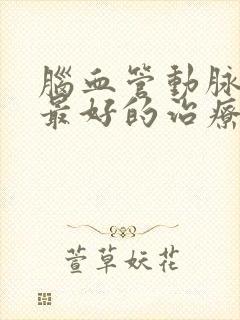 腦血管動脈
最好的治療
萱草妖花